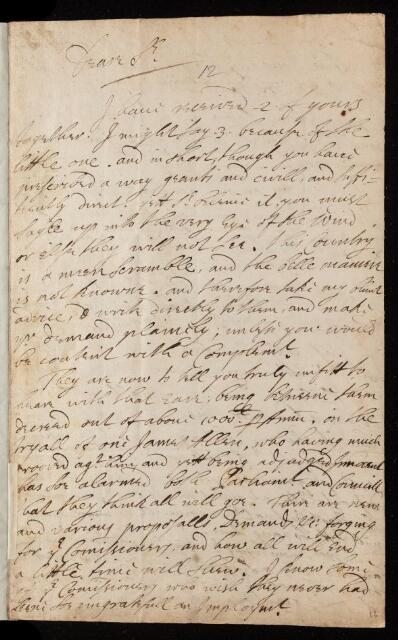 Deare Sr.
12
I have received 2 of yours
together. I might say 3. because of the
little one. and in short, though you have
prescribed a way gentile and civill, and suffi-
ciently direct. yett Sr. beleeve it, you must
Sayle up into the very Eye of the Wind,
or else they will not see. This Country
is a meer scramble, and the belle maniere
is not knowne. and therefore take my
advice, & write directly to them, and make
yr demand plainely, unless you would
be content with a Complemt.
They are now to tell you truly unfitt to
with that Eare: being betweene them
decreed out of about 1000 p Annu. on the
tryall of one James Allen, who having much
proved agt and yett being adjudged
has soe alarmed both Parliamt. and Councill
that they think all will goe. There are new
and various proposalls, Demands &c. forging
for ye Comissioners. and how all will End
a little time will shew. I know some
of ye Comissioners who wish they never had
beene soe ingratefull an Imploymt.
12